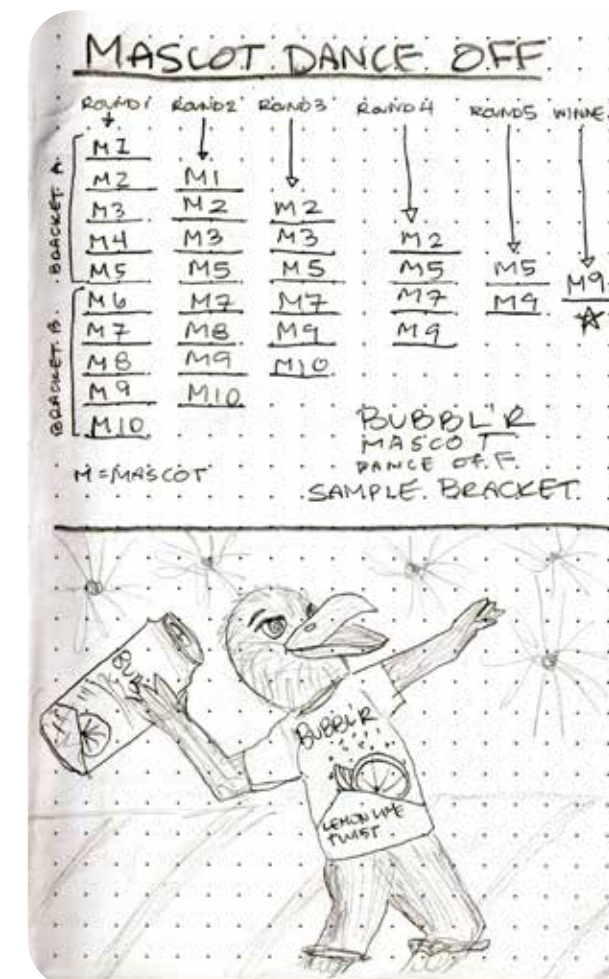 MASCOT DANCE OFF
ROUND1 ROUND2 ROUND3 ROUND4 ROUND5 WINNE
BRACKET A.
BRACKET B.
M1
M2 M1
M3 M2 M2
M4 M3 M3 M2
M5 M5 M5 M5 M5 M9
M6 M7 M7 M7 M9
M7 M8 M9 M9
M8 M9 M10
M9 M10
M10
M=MASCOT
BUBBL'R
MASCOT
DANCE OFF.
SAMPLE BRACKET.
BUB
BUBBL'R
LEMON LIME
TWIST